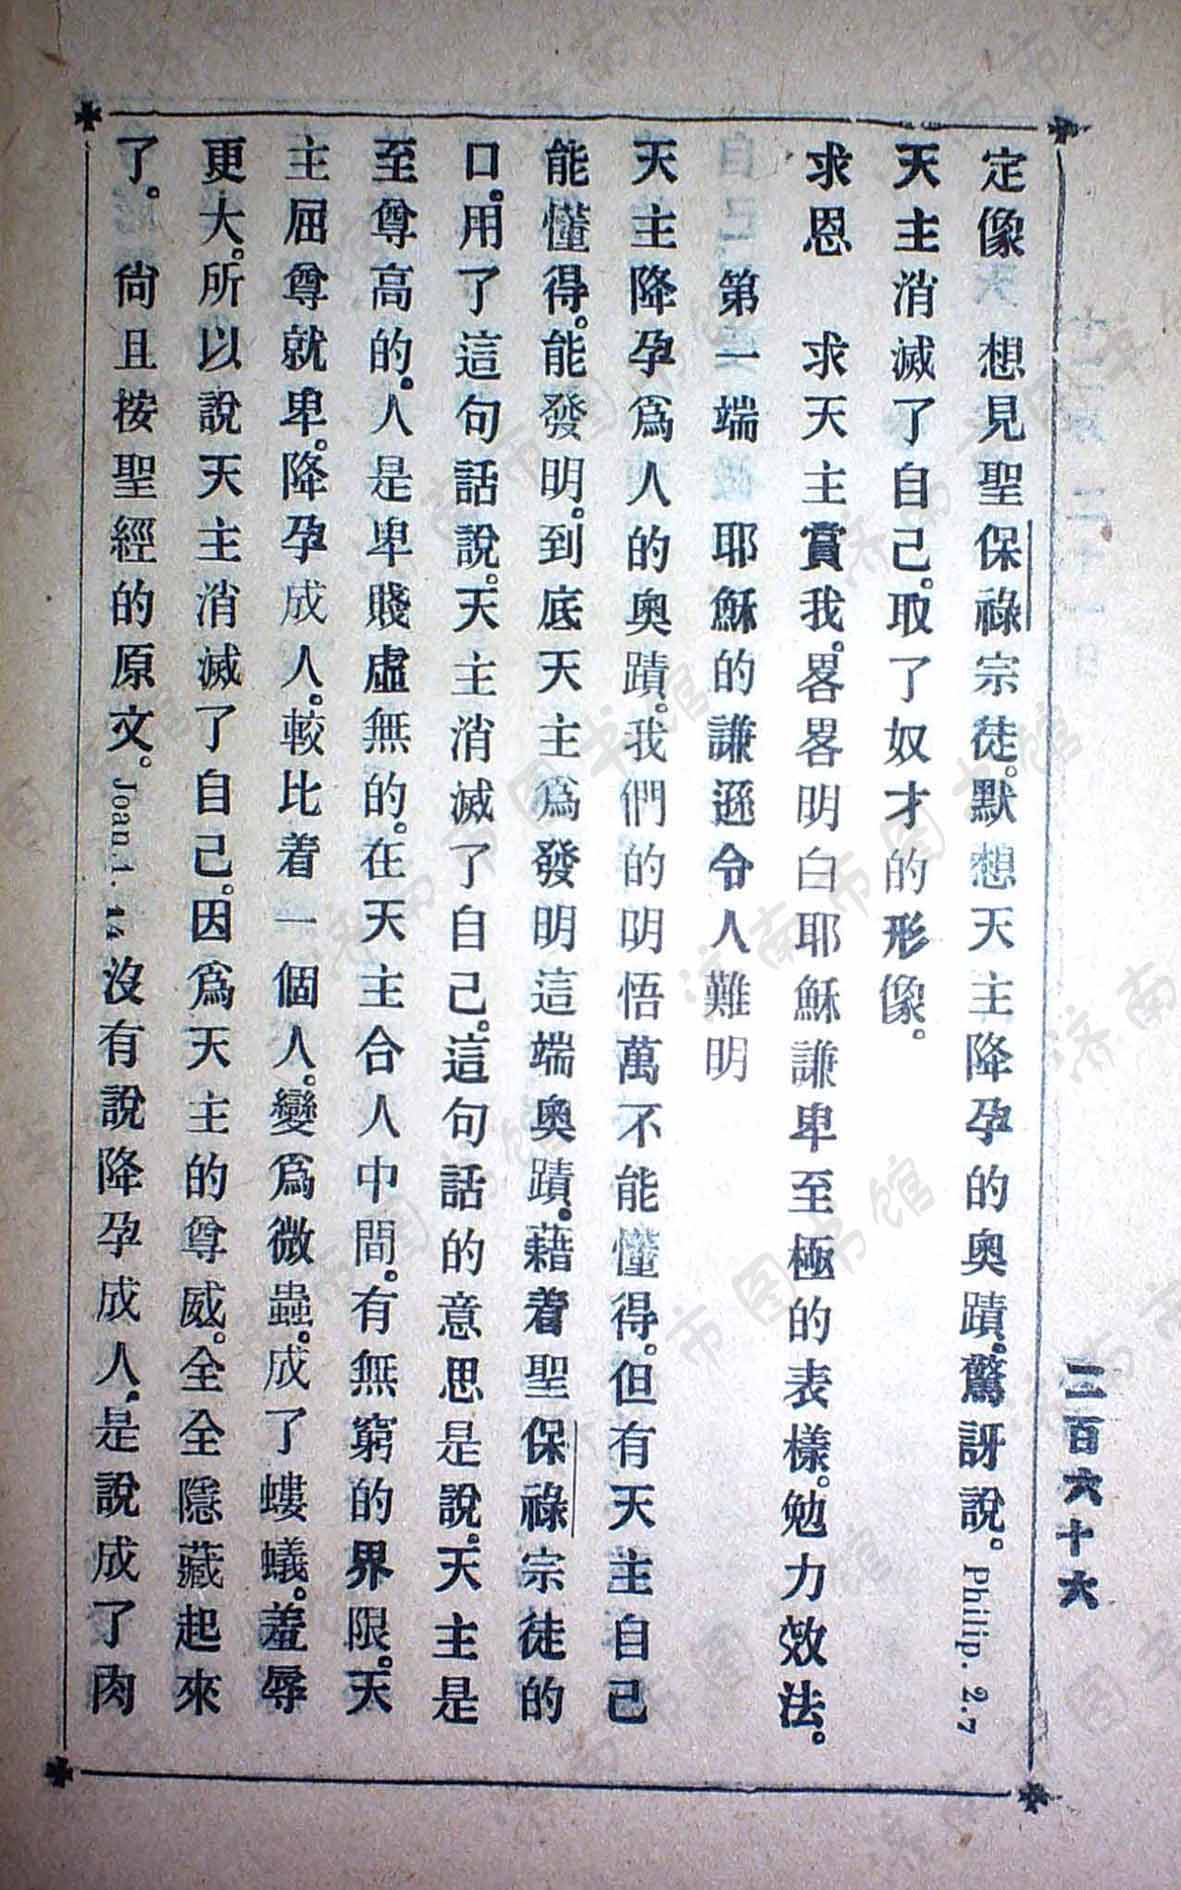 二百六十六
定像　想見聖保祿宗徒。默想天主降孕的奧蹟。驚訝說。Philip. 2.7
天主消滅了自己。取了奴才的形像。
求恩　求天主賞我。畧畧明白耶穌謙卑至極的表樣。勉力效法。
第一端　耶穌的謙遜令人難明
天主降孕爲人的奧蹟。我們的明悟萬不能懂得。但有天主自己
能懂得。能發明。到底天主爲發明這端奧蹟。藉着聖保祿宗徒的
口。用了這句話說。天主消滅了自己。這句話的意思是說。天主是
至尊高的。人是卑賤虛無的。在天主合人中間。有無窮的界限。天
主屈尊就卑。降孕成人。較比着一個人。變爲微蟲。成了螻蟻。羞辱
更大。所以說天主消滅了自己。因爲天主的尊威。全全隱藏起來
了。尙且按聖經的原文。Joan. 1. 14 沒有說降孕成人。是說成了肉